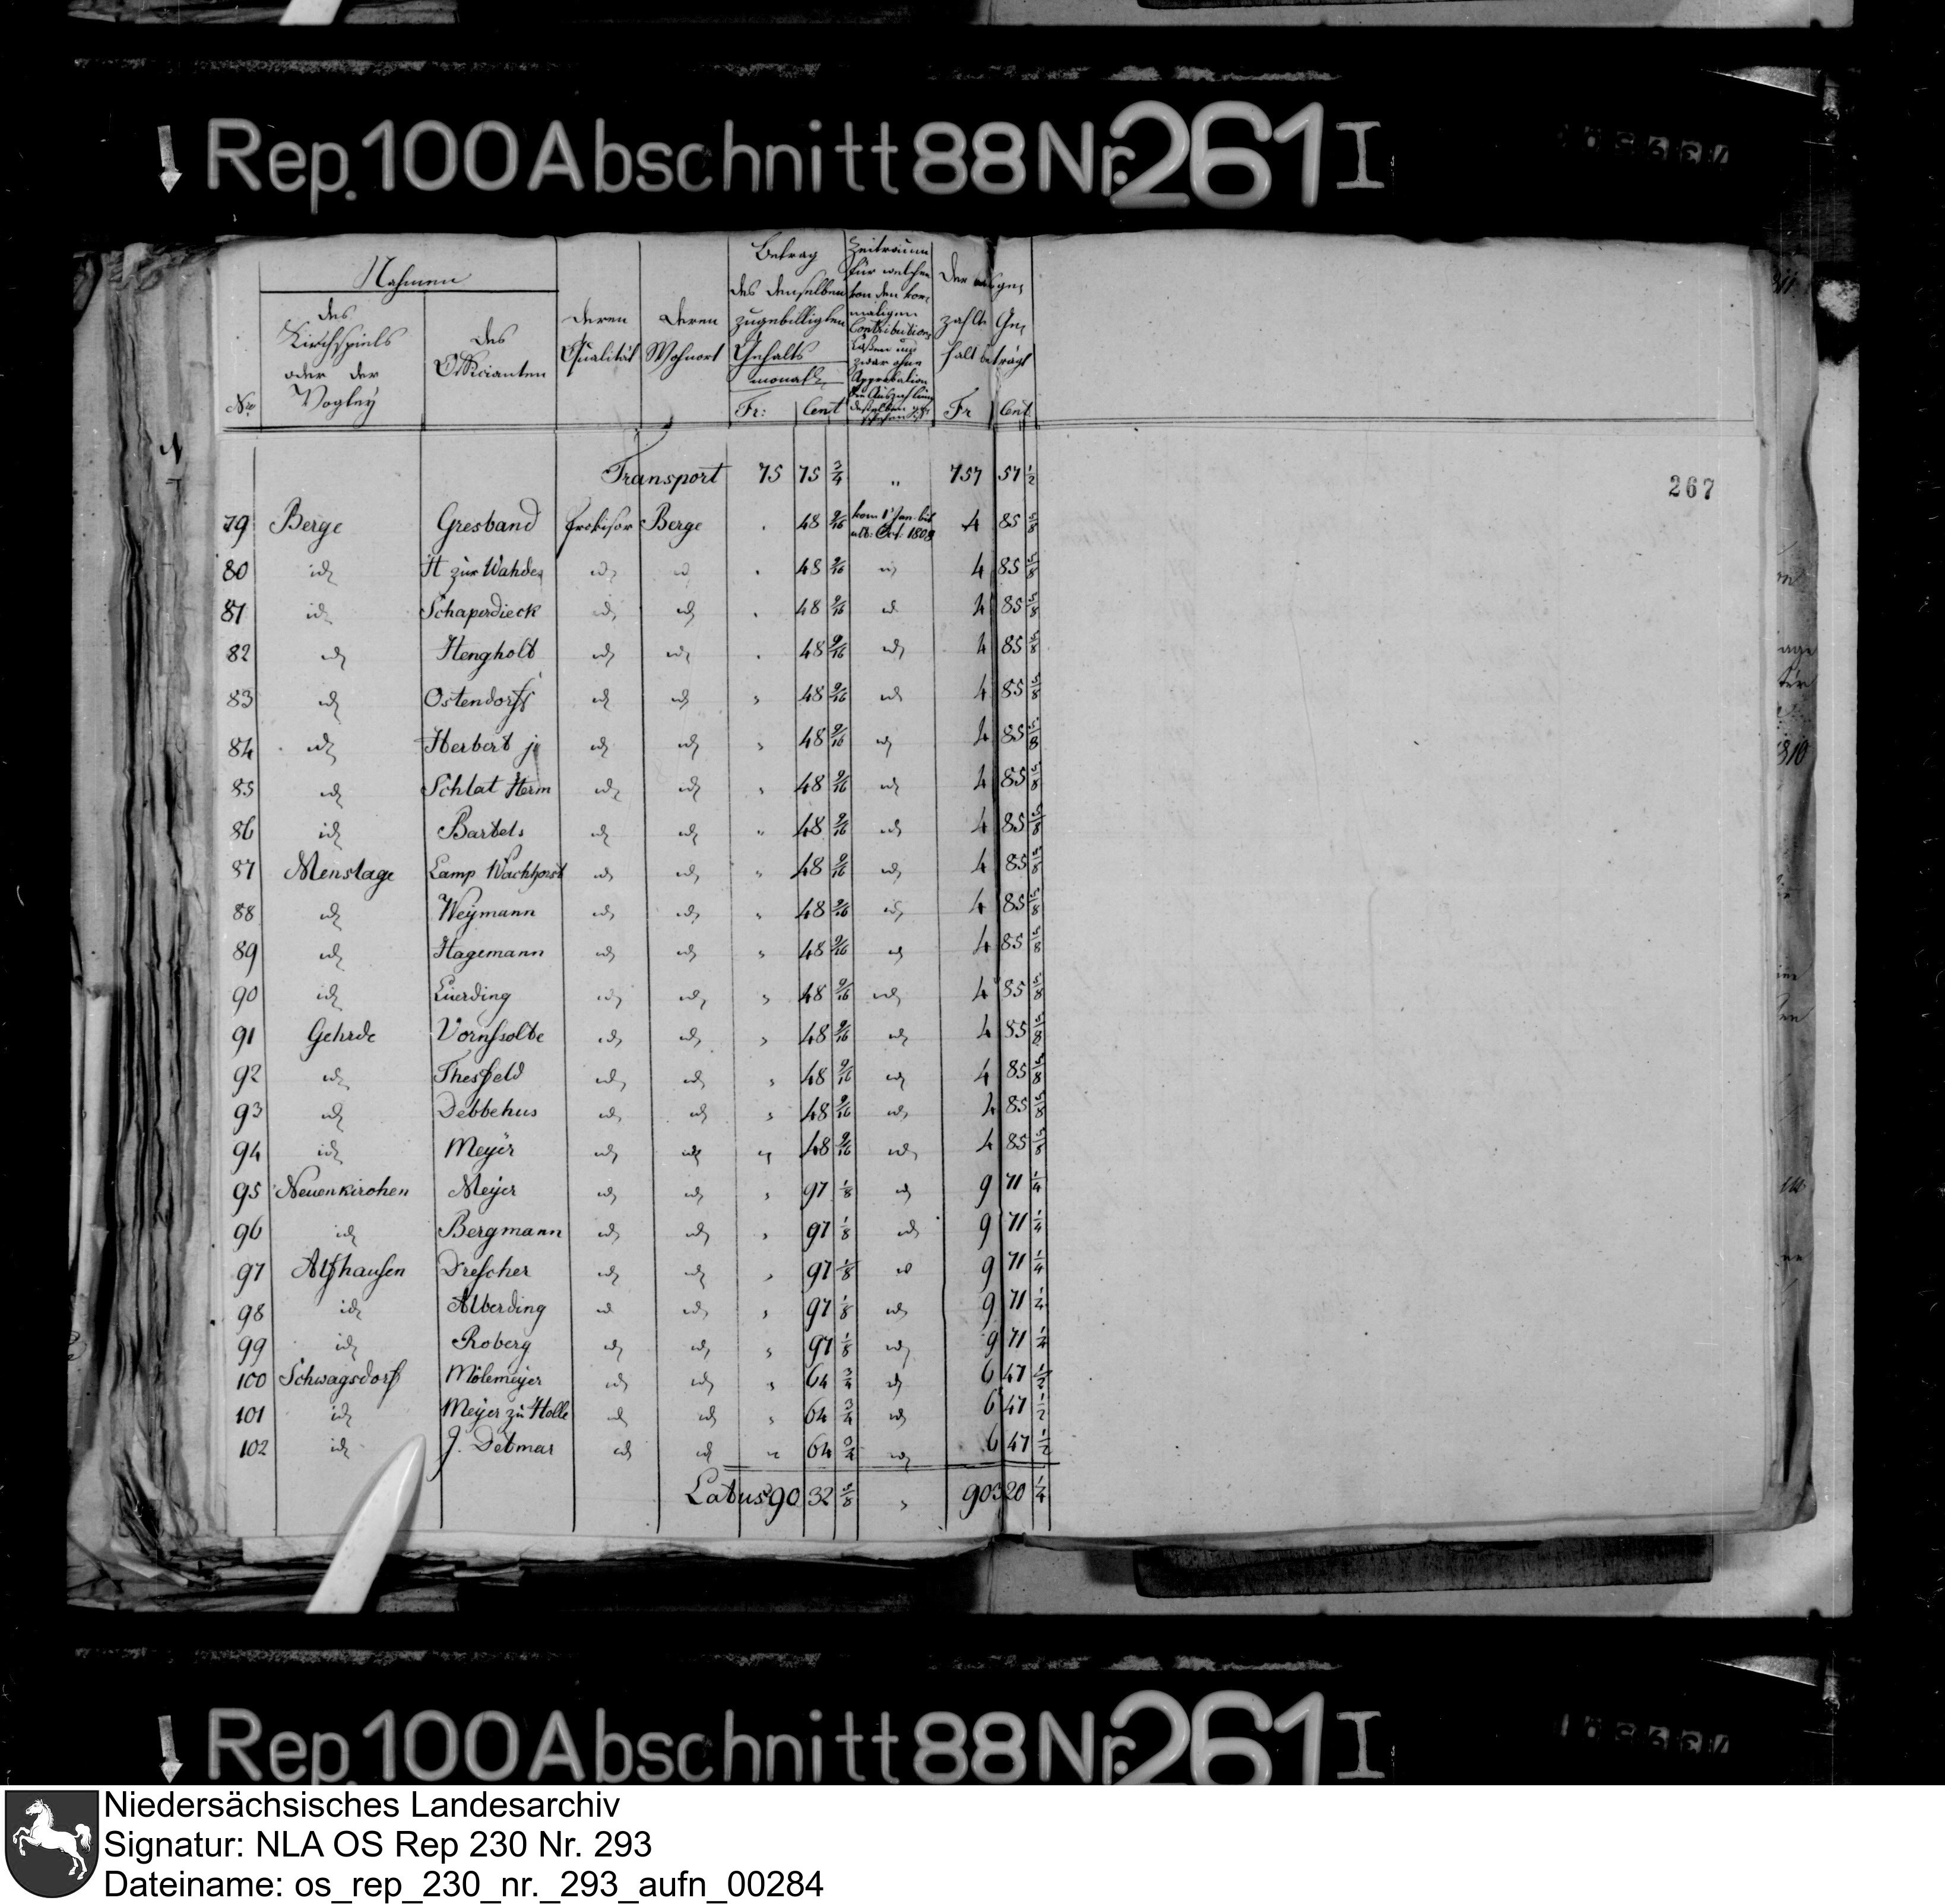 Rep. 100 Abschnitt 88 Nr. 261 I
Nahmen
des Kirchspiels oder der Vogtey
des Officianten
deren Qualität
deren Wohnort
Betrag des denselben zugebilligten Gehalts monatl.
Zeitraum für welchen von den vormaligen Contributions Caßen und zwar ohne Approbation die Auszahlung deßelben geschehen ist
Der ausgezahlte Gehalt beträgt
No. Fr: Cent Fr Cent
Transport 75 75 3/4 „ 757 57 1/2
267
79 Berge Gresband Provisor Berge . 48 9/16 vom 1 Jan. bis ult: Oct: 1808 4 85 5/8
80 id. H zur Wahde id. id . 48 9/16 id 4 85 5/8
81 id. Schaperdieck id. id. . 48 9/16 id. 4 85 5/8
82 id. Hengholt id. id. . 48 9/16 id. 4 85 5/8
83 id. Ostendorff id. id. „ 48 9/16 id. 4 85 5/8
84 id. Herbert j id. id. „ 48 9/16 id. 4 85 5/8
85 id. Schlat Herm id. id. „ 48 9/16 id. 4 85 5/8
86 id. Bartels id. id. „ 48 9/16 id. 4 85 5/8
87 Menslage Lamp Wachhorst id. id. „ 48 9/16 id. 4 85 5/8
88 id. Weÿmann id. id. „ 48 9/16 id. 4 85 5/8
89 id. Hagemann id. id. „ 48 9/16 id. 4 85 5/8
90 id. Lierding id. id. „ 48 9/16 id. 4 85 5/8
91 Gehrde Vornholte id. id. „ 48 9/16 id. 4 85 5/8
92 id. Thesfeld id. id. „ 48 9/16 id. 4 85 5/8
93 id. Debbehus id. id. „ 48 9/16 id. 4 85 5/8
94 id. Meÿer id. id. „ 48 9/16 id. 4 85 5/8
95 Neuenkirchen Meÿer id. id. „ 97 1/8 id. 9 71 1/4
96 id. Bergmann id. id. „ 97 1/8 id. 9 71 1/4
97 Alfhausen Drescher id. id. „ 97 1/8 id 9 71 1/4
98 id. Alberding id. id. „ 97 1/8 id. 9 71 1/4
99 id. Roberg id. id. „ 97 1/8 id. 9 71 1/4
100 Schwagsdorf Mölemeÿer id. id. „ 64 3/4 id. 6 47 1/2
101 id. Meÿer zu Holle id. id. „ 64 3/4 id. 6 47 1/2
102 id. J. Detmar id. id. „ 64 3/4 id. 6 47 1/2
Latus 90 32 5/8 „ 903 20 1/4
Rep. 100 Abschnitt 88 Nr. 261 I
Niedersächsisches Landesarchiv
Signatur: NLA OS Rep 230 Nr. 293
Dateiname: os_rep_230_nr._293_aufn_00284